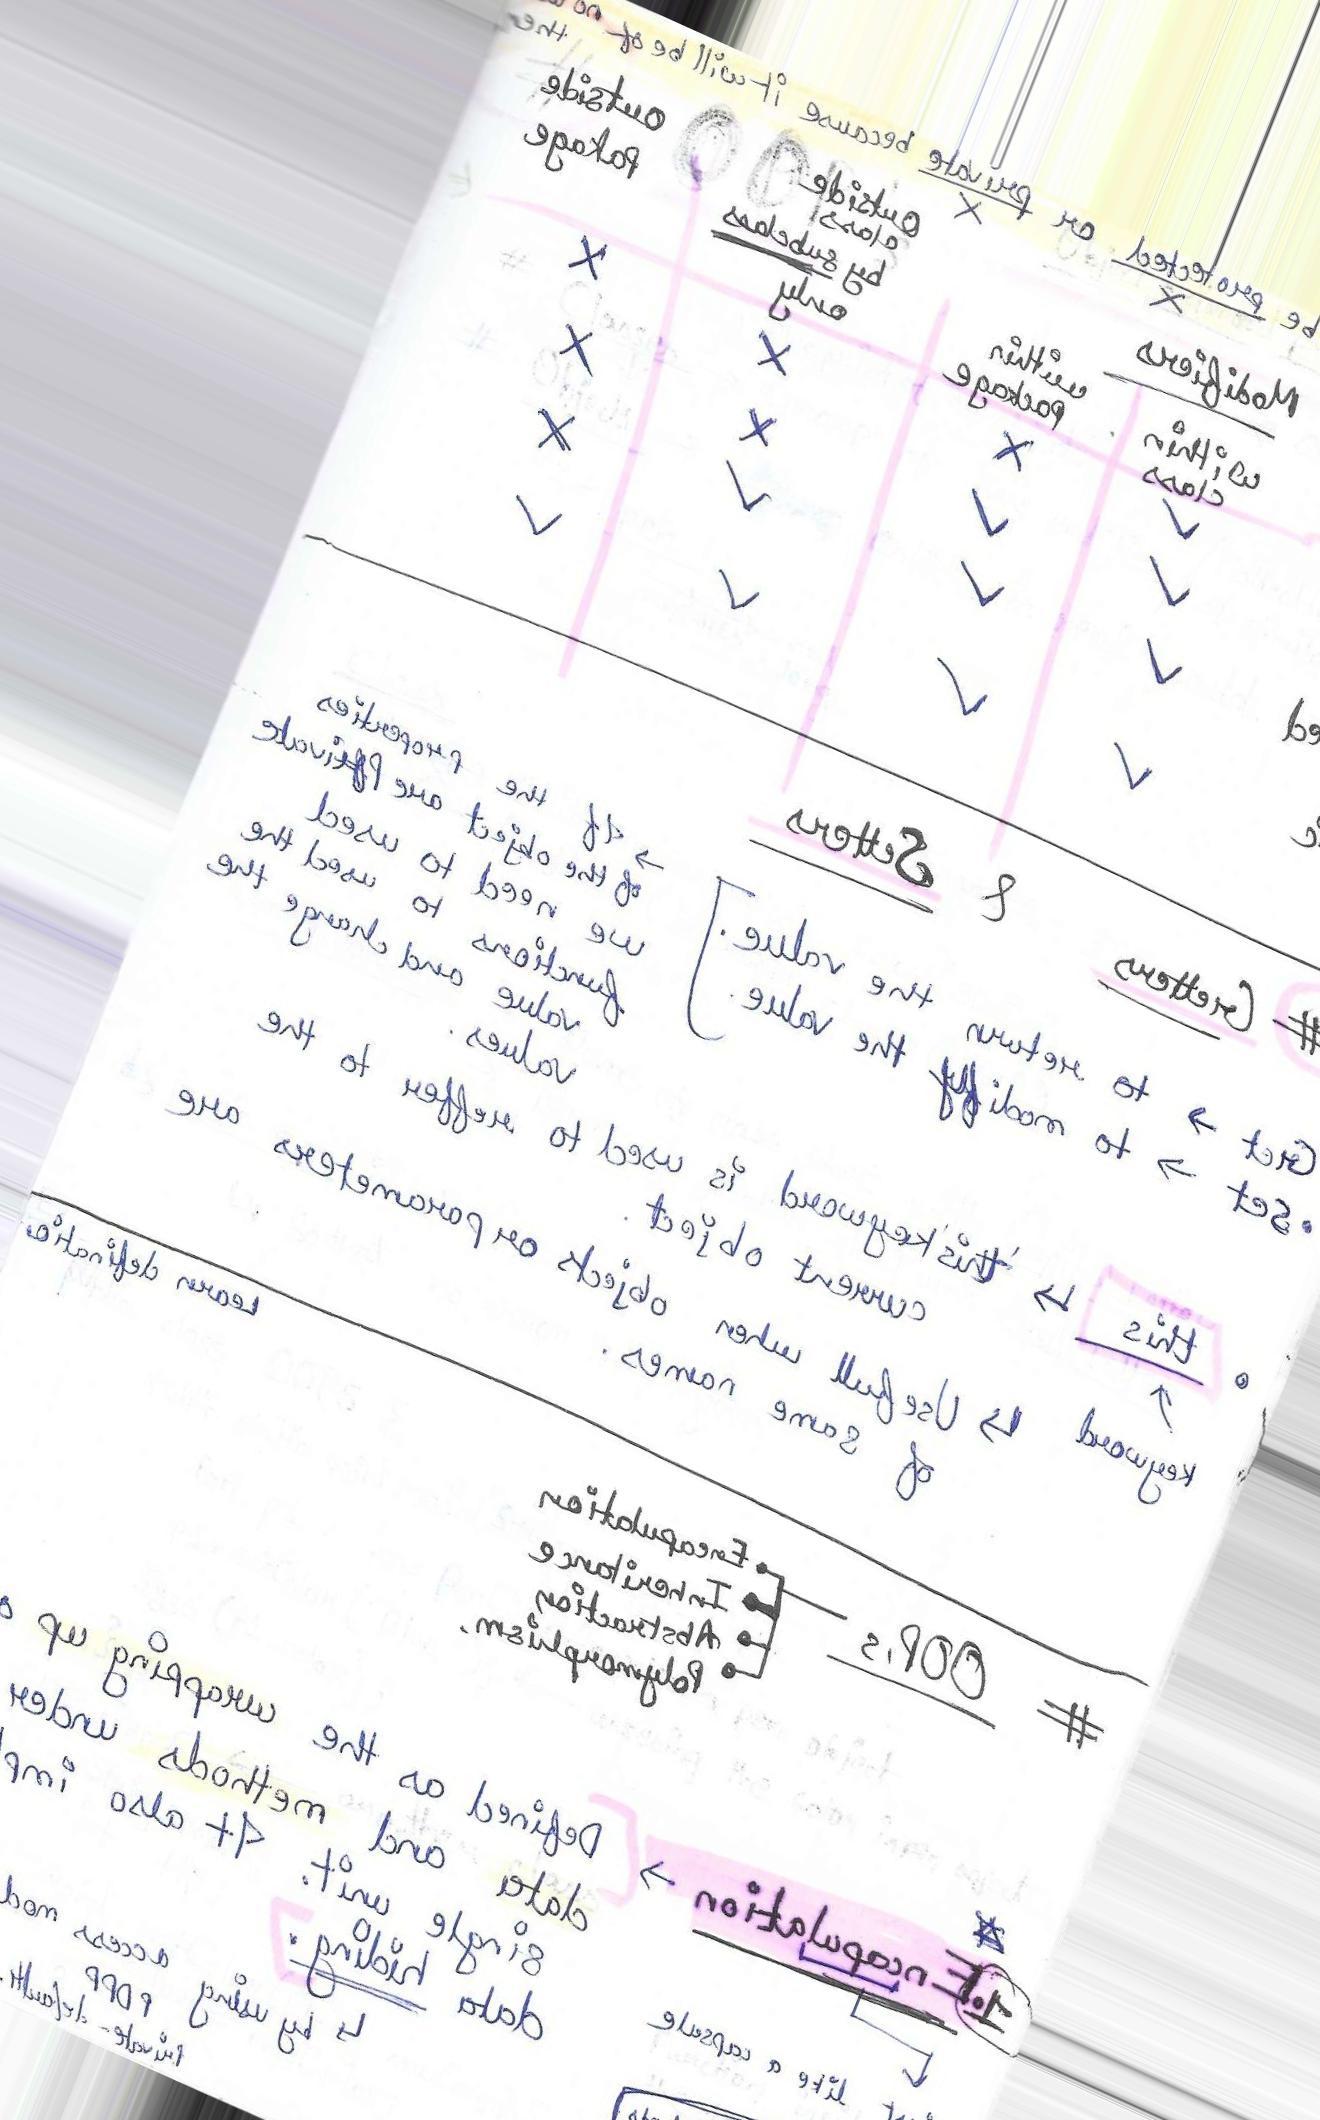 be protected or private because it will be of no
X X
Modifiers
within class
within package
outside class by subclass only
outside Pakage
✓ X X X
✓ ✓ X X
✓ ✓ ✓ X
✓ ✓ ✓ ✓
# Getters & Setters
Get → to return the value.
• Set → to modify the value.
→ If the properties
of the object are Private
we need to used
functions to used the
value and change the
values.
• this ↳ 'this' keyword is used to reffer to the
current object.
keyword ↳ Usefull when objects or parameters are
of same names.
Learn definatio
# OOPs
• Encapulation
• Inheritance
• Abstraction
• Polymorphism.
1. Encapulation → Defined as the wrapping up
data and methods under
single unit. It also imp
data hiding.
↳ by using access mod
PDPP
Private-default
like a capsule